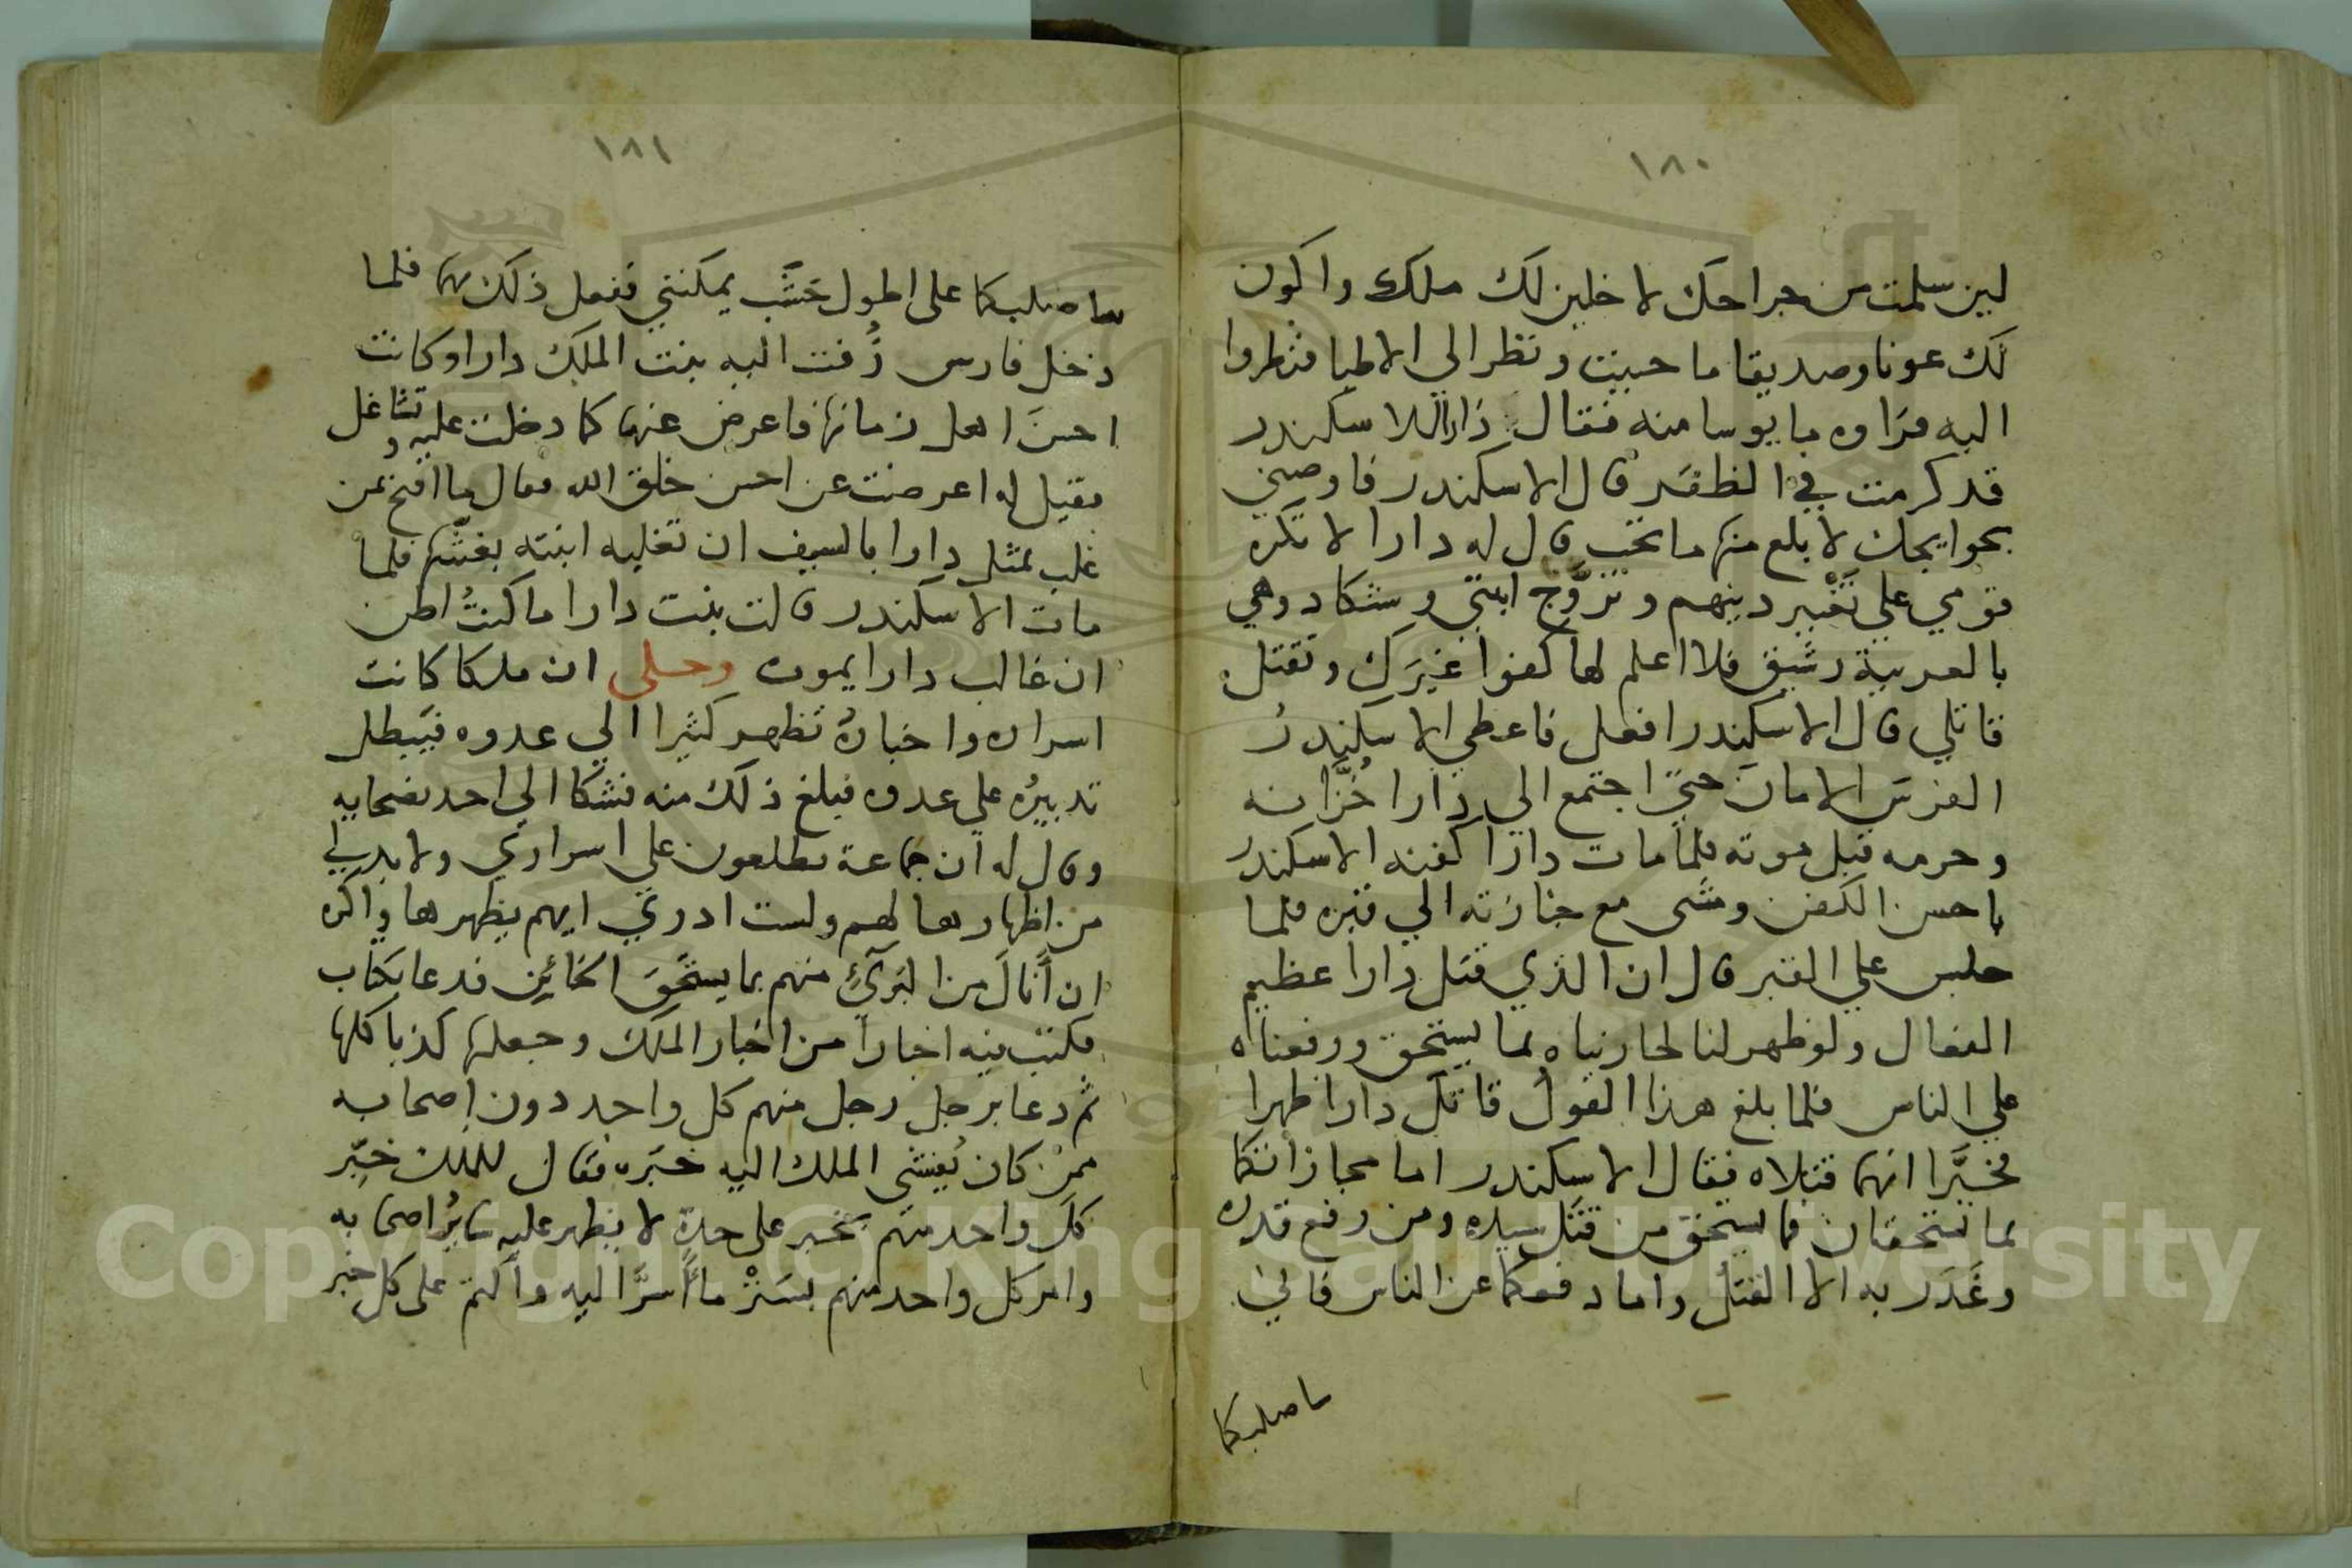 ١٨٠
لين سلمت من جراحك لاخلين لك ملكك واكون
لك عونا وصديقا ما حييت ونظر الي الاطبا فنظروا
اليه فراوه مايوسا منه فقال دارا للاسكندر
قد كرمت في الظفر قال الاسكندر فاوصيني
بحوايجك لابلع منها ما تحب قال له دارا لا تكره
قومي علي تغيير دينهم وتزوج ابنتي وشكاد وهي
بالعربية رشيق فلا اعلم لها كفوا غيرك وتقتل
قاتلي قال الاسكندر افعل فاعطي الاسكندر
الفرس الامان حتي اجتمع الي دارا خزانه
وحرمه قبل موته فلما مات دارا كفنه الاسكندر
باحسن الكفن ومشى مع جنازته الي قبره فلما
جلس علي القبر قال ان الذي قتل دارا عظيم
الفعال ولو ظهر لنا لجازيناه بما يستحق ورفعناه
علي الناس فلما بلغ هذا القول قاتلا دارا ظهرا
فخبرا انهما قتلاه فقال الاسكندر اما مجازاتكما
بما تستحقان فما يستحق من قتل سيده ومن رفع قدره
وغدر به الا القتل واما رفعكما عن الناس فاني
ساصلبكما
١٨١
ساصلبكما على اطول خشب يمكنني ففعل ذلك بهما فلما
دخل فارس زفت اليه بنت الملك دارا وكانت
احسن اهل زمانها فاعرض عنها كما دخلت عليه وتشاغل
فقيل له اعرضت عن احسن خلق الله فقال ما اقبح بمن
غلب بمثل دارا بالسيف ان تغلبه ابنته بغنثها فلما
مات الاسكندر قالت بنت دارا ما كنت اظن
ان غالب دارا يموت وحكى ان ملكا كانت
اسراره واخباره تظهر كثيرا الي عدوه فيبطل
تدبيره علي عدوه فبلغ ذلك منه فشكا الي احد نصحايه
وقال له ان جماعة يطلعون علي اسراري ولابد لي
من اظهارها لهم ولست ادري ايهم يظهرها واكره
ان أنال من البريء منهم بما يستحق الخائن فدعا بكتاب
فكتب فيه اخبارا من اخبار الملك وجعلها كذبا كلها
ثم دعا برجل رجل منهم كل واحد دون اصحابه
ممن كان يفشي الملك اليه خبره فقال للملك خبر
كل واحد منهم بخبر على حدة لا يظهر عليه ساير اصحابه
وامر كل واحد منهم بستر ما أسر اليه واكتم على كل خبر
Copyright © King Saud University